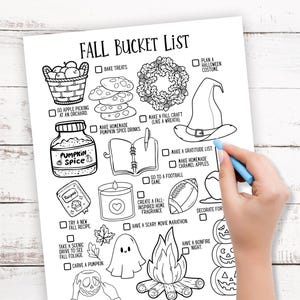 FALL BUCKET LIST
BAKE TREATS
PLAN A
HALLOWEEN
COSTUME
GO APPLE PICKING
AT AN ORCHARD
MAKE HOMEMADE
PUMPKIN SPICE DRINKS
MAKE A FALL CRAFT
(LIKE A WREATH)
PUMPKIN
SPICE
MAKE A GRATITUDE LIST
MAKE HOMEMADE
CARAMEL APPLES
GO TO A FOOTBALL
GAME
TRY A NEW
FALL RECIPE
CREATE A FALL-
INSPIRED HOME
FRAGRANCE
DECORATE FOR
HAVE A SCARY MOVIE MARATHON
TAKE A SCENIC
DRIVE TO SEE
FALL FOLIAGE
HAVE A BONFIRE
NIGHT
CARVE A PUMPKIN